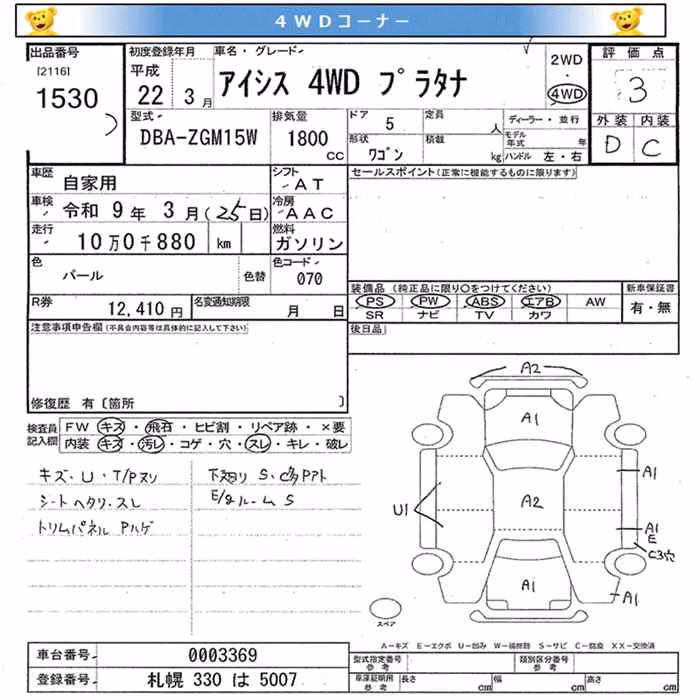 4WDコーナー
出品番号
[2116]
1530
初度登録年月
平成
22 3月
車名・グレード
アイシス 4WD プラタナ
2WD
・
4WD
評価点
3
外装 内装
D C
型式
DBA-ZGM15W
排気量
1800
CC
ドア 5
定員 人
形状
ワゴン
積載 kg
ディーラー・並行
モデル年式 年
ハンドル 左・右
車歴
自家用
シフト
AT
車検
令和 9年 3月(25日)
冷房
AAC
走行
10万0千880 km
燃料
ガソリン
色
パール
色替
色コード
070
R券
12,410円
名変通知期限
月 日
セールスポイント(正常に機能するものに限ります)
装備品 (純正品に限り○をつけてください)
PS PW ABS エアB AW
SR ナビ TV カワ
新車保証書
有・無
後日品
注意事項申告欄(不具合内容等は具体的に記入して下さい)
修復歴 有〔箇所 〕
検査員
記入欄
FW キズ・飛石・ヒビ割・リペア跡・×要
内装 キズ・汚レ・コゲ・穴・スレ・キレ・破レ
キズ・U・T/Pヌリ
シートヘタリ・スレ
トリムパネル Pハゲ
下廻リ S
E/gルーム S
A2
A1
A2
A1
U1
A1
A1
E
C3穴
A1
スペア
A-キズ E-エクボ U-凹み W-補修跡 S-サビ C-腐食 XX-交換済
車台番号
0003369
登録番号
札幌 330 は 5007
型式指定番号
参考
類別区分番号
参考
車庫証明用
参考
長さ cm
幅 cm
高さ cm